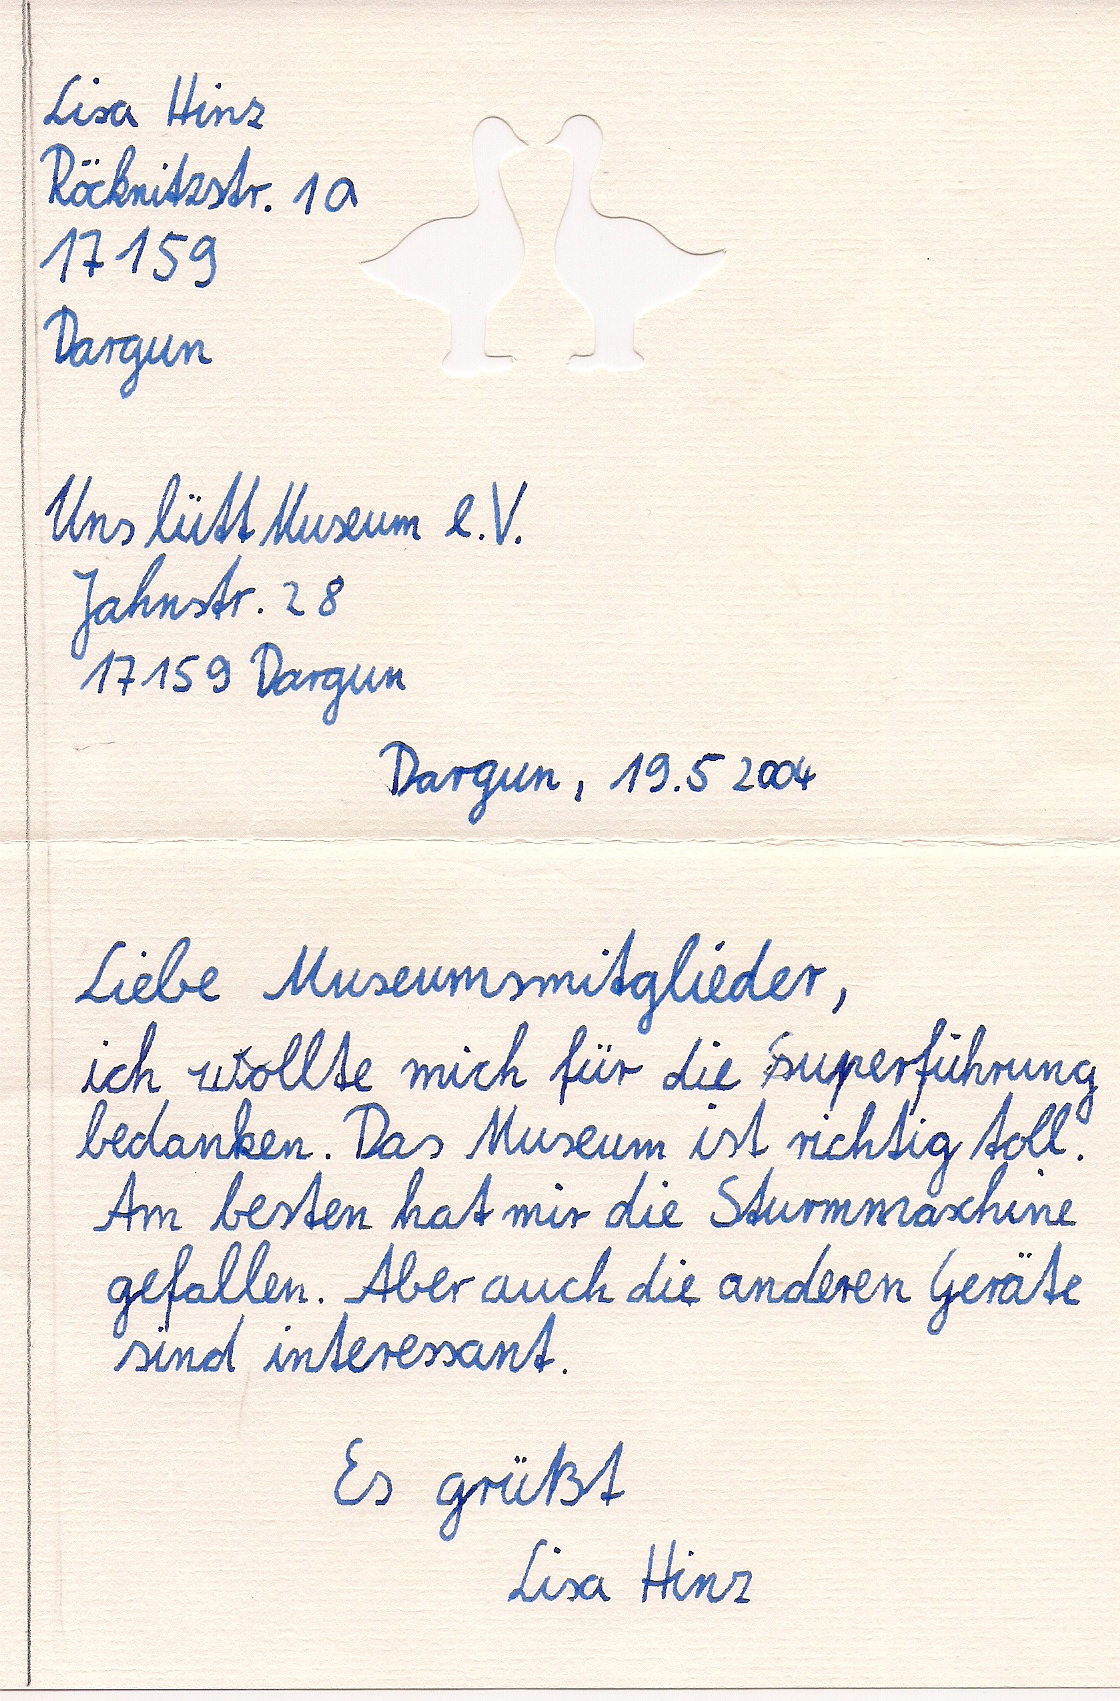 Lisa Hinz
Röcknitzstr. 1a
17159
Dargun
Uns lütt Museum e.V.
Jahnstr. 28
17159 Dargun
Dargun, 19.5 2004
Liebe Museumsmitglieder,
ich wollte mich für die superführung
bedanken. Das Museum ist richtig toll.
Am besten hat mir die Sturmmaschine
gefallen. Aber auch die anderen Geräte
sind interessant.
Es grüßt
Lisa Hinz